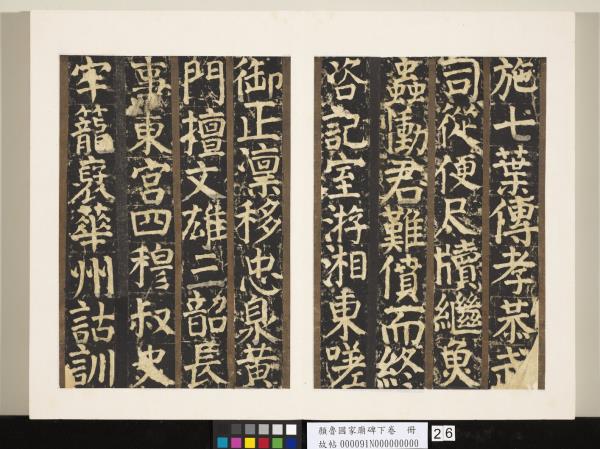 施七葉傳孝恭武
司從便尺牘繼魚
蟲慟君難僨而終
咨記室游湘東嗟
御正凛移忠臮黃
門擅文雄三韶長
事東宮四穆叔史
牢籠裦華州詁訓
顏魯國家廟碑下卷 冊
故帖 000091N000000000
26